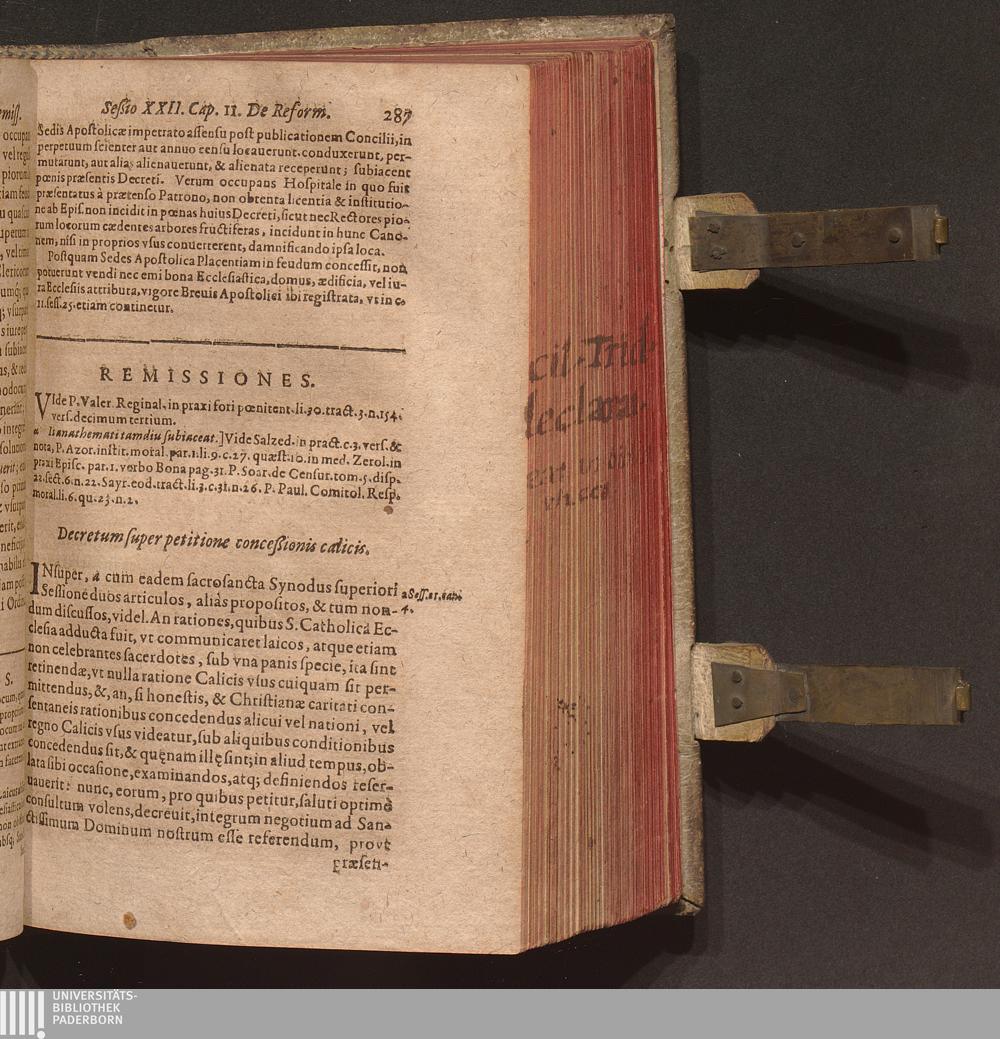 Sessio XXII. Cap. 11. De Reform. 287
Sedis Apostolicæ impetrato assensu post publicationem Concilii, in
perpetuum scienter aut annuo censu locauerunt, conduxerunt, per-
mutarunt, aut alias alienauerunt, & alienata receperunt; subiacent
pœnis præsentis Decreti. Verum occupans Hospitale in quo fuit
præsentatus à prætenso Patrono, non obtenta licentia & institutio-
ne ab Epis. non incidit in pœnas huius Decreti, sicut nec Rectores pio-
rum locorum cædentes arbores fructiferas, incidunt in hunc Cano-
nem, nisi in proprios vsus conuerterent, damnificando ipsa loca.
Postquam Sedes Apostolica Placentiam in feudum concessit, non
potuerunt vendi nec emi bona Ecclesiastica, domus, ædificia, vel iu-
ra Ecclesiis attributa, vigore Breuis Apostolici ibi registrata, vt in c.
11. sess. 25. etiam continetur.
REMISSIONES.
VIde P. Valer. Reginal. in praxi fori pœnitent. li. 30. tract. 3. n. 154.
vers. decimum tertium.
a Is anathemati tamdiu subiaceat.] Vide Salzed. in pract. c. 3. vers. &
nota, P. Azor. instit. moral. par. 1. li. 9. c. 27. quæst. 10. in med. Zerol. in
praxi Episc. par. 1. verbo Bona pag. 31. P. Soar. de Censur. tom. 5. disp.
22. sect. 6. n. 22. Sayr. eod. tract. li. 3. c. 31. n. 26. P. Paul. Comitol. Resp.
moral. li. 6. qu. 23. n. 2.
Decretum super petitione concessionis calicis.
INsuper, a cum eadem sacrosancta Synodus superiori
Sessione duos articulos, aliàs propositos, & tum non-
dum discussos, videl. An rationes, quibus S. Catholica Ec-
clesia adducta fuit, vt communicaret laicos, atque etiam
non celebrantes sacerdotes, sub vna panis specie, ita sint
retinendæ, vt nulla ratione Calicis vsus cuiquam sit per-
mittendus, &, an, si honestis, & Christianæ caritati con-
sentaneis rationibus concedendus alicui vel nationi, vel
regno Calicis vsus videatur, sub aliquibus conditionibus
concedendus sit, & quęnam illę sint; in aliud tempus, ob-
lata sibi occasione, examinandos, atq; definiendos reser-
uauerit: nunc, eorum, pro quibus petitur, saluti optimè
consultum volens, decreuit, integrum negotium ad San-
ctissimum Dominum nostrum esse referendum, prout
præsen-
4.
cil. Trid.
declara.
UNIVERSITÄTS-
BIBLIOTHEK
PADERBORN